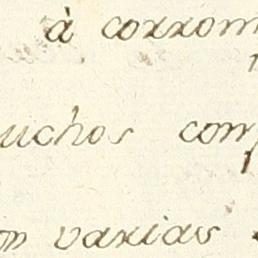 à corrom
uchos com
on varias